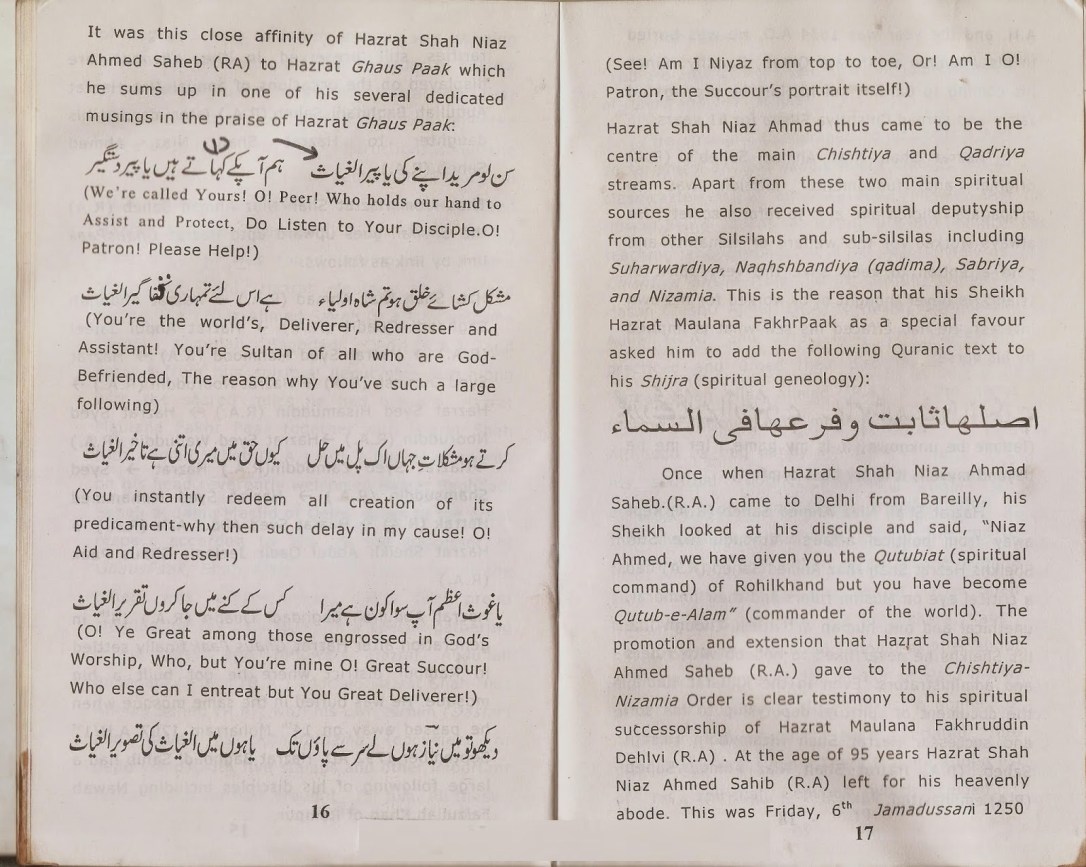 It was this close affinity of Hazrat Shah Niaz
Ahmed Saheb (RA) to Hazrat Ghaus Paak which
he sums up in one of his several dedicated
musings in the praise of Hazrat Ghaus Paak:
سن لو مریدا پنے کی یا پیر الغیاث ہم آپکے کہاتے ہیں یا پیر دستگیر
(We're called Yours! O! Peer! Who holds our hand to
Assist and Protect, Do Listen to Your Disciple.O!
Patron! Please Help!)
مشکل کشائے خلق ہو تم شاہ اولیاء ہے اس لئے تمہاری گیر الغیاث
(You're the world's, Deliverer, Redresser and
Assistant! You're Sultan of all who are God-
Befriended, The reason why You've such a large
following)
کرتے ہو مشکلات جہاں اک پل میں حل کیوں حق میں میری اتنی ہے تاخیر الغیاث
(You instantly redeem all creation of its
predicament-why then such delay in my cause! O!
Aid and Redresser!)
یا غوث اعظم آپ سوا کون ہے میرا کس کے کنے میں جا کروں تقریر الغیاث
(O! Ye Great among those engrossed in God's
Worship, Who, but You're mine O! Great Succour!
Who else can I entreat but You Great Deliverer!)
دیکھو تو میں نیاز ہوں لے سر سے پاؤں تک یا ہوں میں الغیاث کی تصویر الغیاث
16
(See! Am I Niyaz from top to toe, Or! Am I O!
Patron, the Succour's portrait itself!)
Hazrat Shah Niaz Ahmad thus came to be the
centre of the main Chishtiya and Qadriya
streams. Apart from these two main spiritual
sources he also received spiritual deputyship
from other Silsilahs and sub-silsilas including
Suharwardiya, Naqhshbandiya (qadima), Sabriya,
and Nizamia. This is the reason that his Sheikh
Hazrat Maulana FakhrPaak as a special favour
asked him to add the following Quranic text to
his Shijra (spiritual geneology):
اصلهاثابت وفرعهافی السماء
Once when Hazrat Shah Niaz Ahmad
Saheb.(R.A.) came to Delhi from Bareilly, his
Sheikh looked at his disciple and said, "Niaz
Ahmed, we have given you the Qutubiat (spiritual
command) of Rohilkhand but you have become
Qutub-e-Alam" (commander of the world). The
promotion and extension that Hazrat Shah Niaz
Ahmed Saheb (R.A.) gave to the Chishtiya-
Nizamia Order is clear testimony to his spiritual
successorship of Hazrat Maulana Fakhruddin
Dehlvi (R.A) . At the age of 95 years Hazrat Shah
Niaz Ahmed Sahib (R.A) left for his heavenly
abode. This was Friday, 6th Jamadussani 1250
17